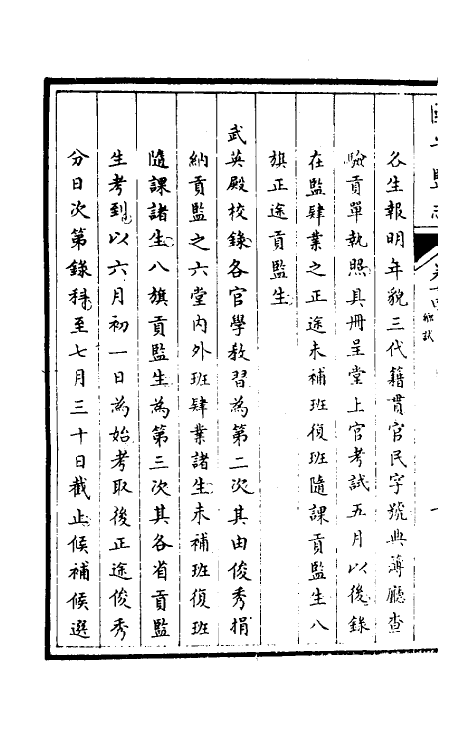 各生報明年貌三代籍貫官民字號典簿廳查
驗貢單執照具冊呈堂上官考試五月以後錄
在監肄業之正途未補班復班隨課貢監生八
旗正途貢監生
武英殿校錄各官學教習為第二次其由俊秀捐
納貢監之六堂內外班肄業諸生未補班復班
隨課諸生八旗貢監生為第三次其各省貢監
生考到以六月初一日為始考取後正途俊秀
分日次第錄科至七月三十日截止候補候選